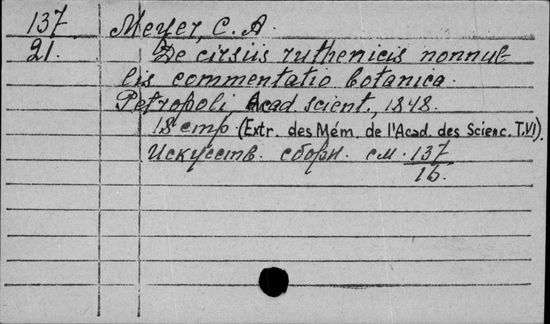 137 Meyer, C. A.
21. De cirsiis ruthenicis nonnul-
lis commentatio botanica.
Petropoli Acad. scient., 1848.
18 стр (Extr. des Mém. de l'Acad. des Scienc. T.VI).
Искусств. сборн. см. 137
16.